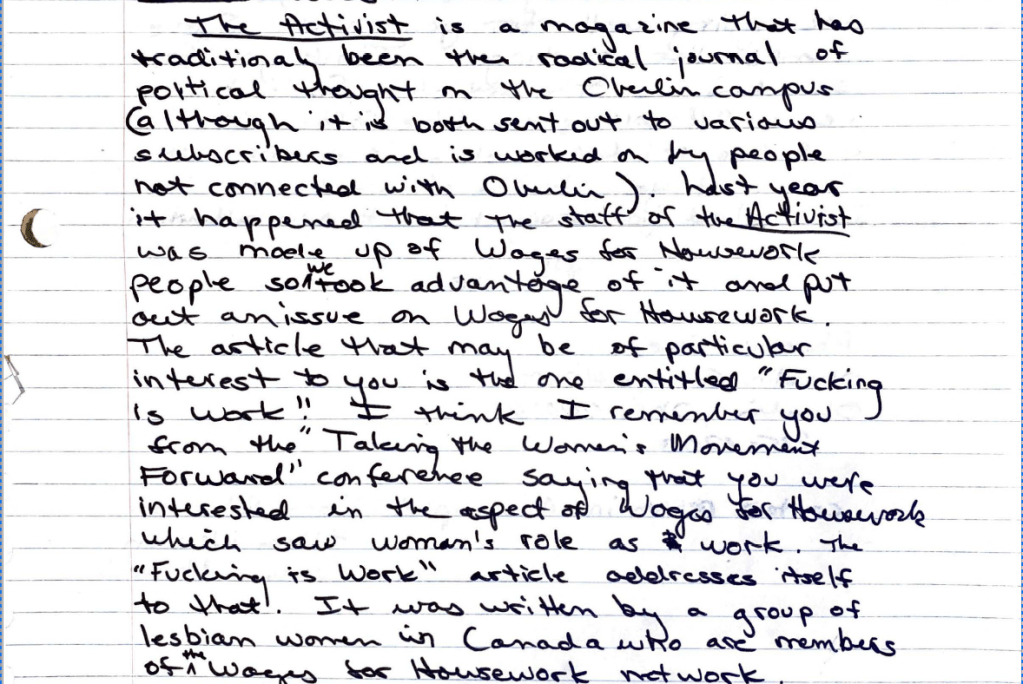 The Activist is a magazine that has
traditionaly been the radical journal of
poltical thought on the Oberlin campus
(although it is both sent out to various
subscribers and is worked on by people
not connected with Oberlin). Last year
it happened that the staff of the Activist
was made up of Wages for Housework
people so we took advantage of it and put
out an issue on Wages for Housework.
The article that may be of particular
interest to you is the one entitled "Fucking
is work!" I think I remember you
from the "Taking the Women's Movement
Forward" conference saying that you were
interested in the aspect of Wages for Housework
which saw woman's role as work. The
"Fucking is Work" article addresses itself
to that. It was written by a group of
lesbian women in Canada who are members
of the Wages for Housework network.